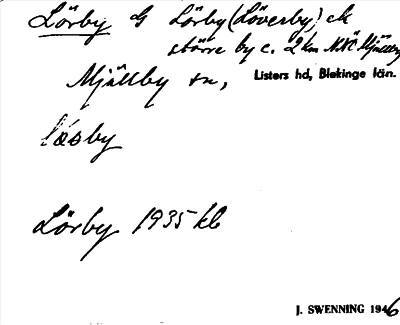 Lörby G Lörby (Löverby) ek
större by c. 2 km NNÖ Mjällby
Mjällby sn, Listers hd, Blekinge län.
Lörby 1935 kb
J. SWENNING 1946